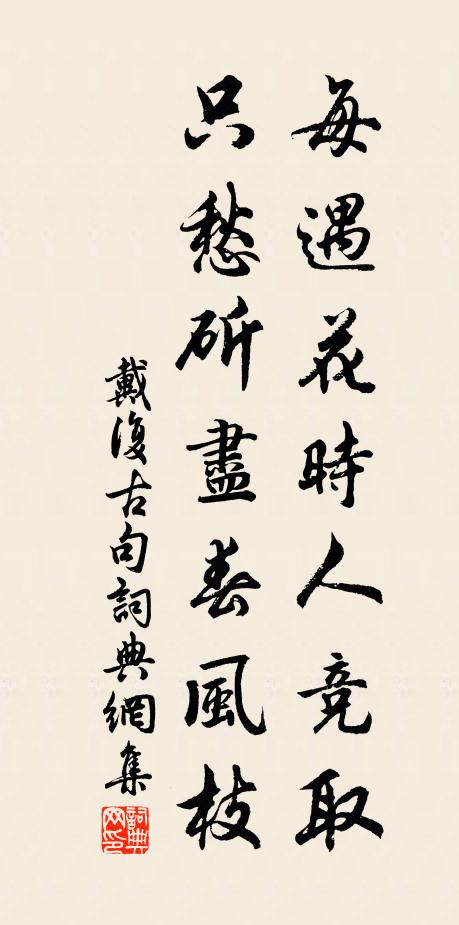 每遇花時人竞取
只愁斫盡春風枝
戴復古句詞典網集
詞典网印